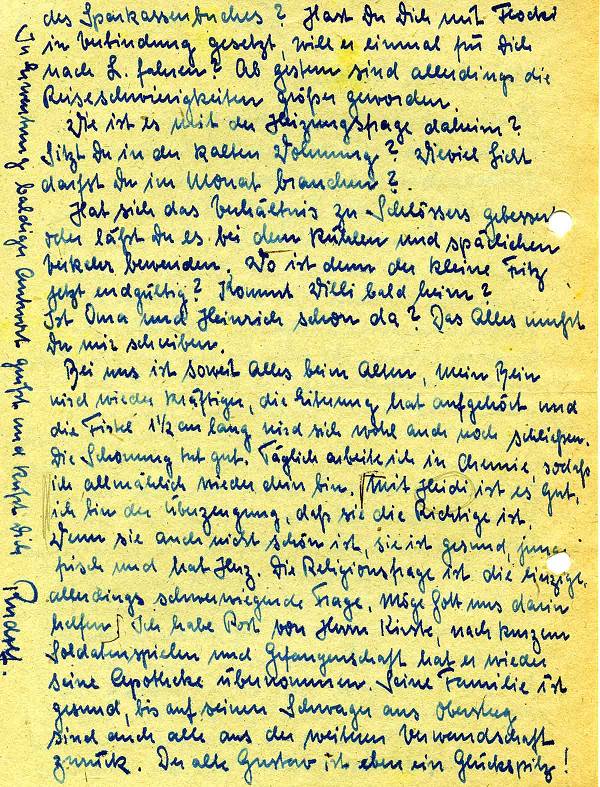 des Sparkassenbuches? Hast Du Dich mit Flocki
in Verbindung gesetzt, will er einmal für Dich
nach L. fahren? Ab gestern sind allerdings die
Reiseschwierigkeiten größer geworden.
Wie ist es mit der Heizungsfrage daheim?
Sitzt Du in der kalten Wohnung? Wieviel Licht
darfst Du im Monat brauchen?
Hat sich das Verhältnis zu Schlössers gebessert
oder läßt Du es bei dem kühlen und spärlichen
Verkehr bewenden. Wo ist denn der kleine Fritz
jetzt endgültig? Kommt Willi bald heim?
Ist Oma und Heinrich schon da? Das Alles mußt
Du mir schreiben.
Bei uns ist soweit Alles beim Alten, mein Bein
wird wieder kräftiger, die Eiterung hat aufgehört und
die Fistel 1½ cm lang wird sich wohl auch noch schließen.
Die Schonung tut gut. Täglich arbeite ich in Chemie, sodaß
ich allmählich wieder drin bin. Mit Heidi ist es gut,
ich bin der Überzeugung, daß sie die Richtige ist.
Wenn sie auch nicht schön ist, sie ist gesund, jung
frisch und hat Herz. Die Religionsfrage ist die einzige,
allerdings schwerwiegende Frage, möge Gott uns darin
helfen. Ich habe Post von Herrn Kirste, nach kurzem
Soldatenspielen und Gefangenschaft hat er wieder
seine Apotheke übernommen. Seine Familie ist
gesund, bis auf seinen Schwager aus
sind auch alle aus der weiteren Verwandschaft
zurück. Der alte Gustav ist eben ein Glückspilz!
In Erwartung baldiger Antwort grüßt und küßt Dich Rudolf.